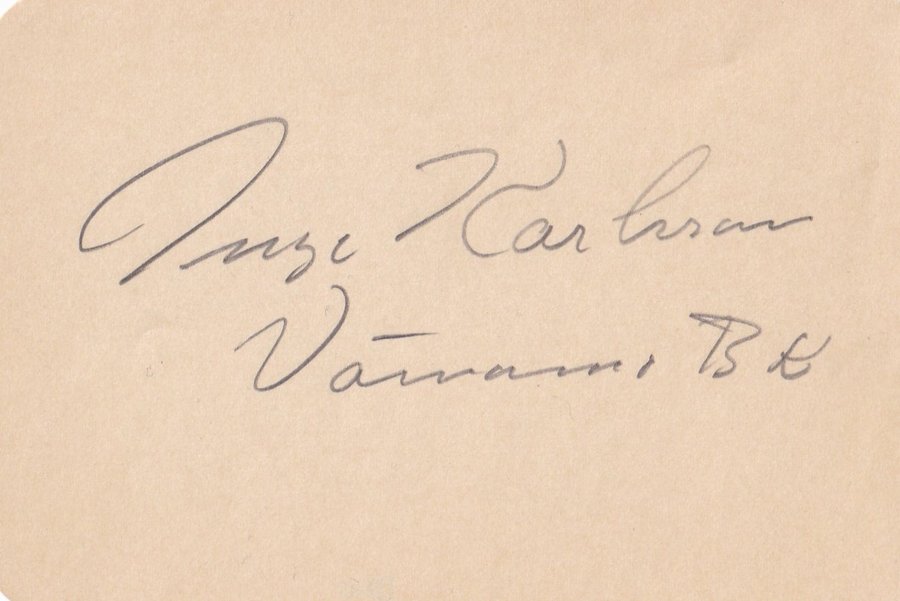 Inge Karlsson
Värnamo BK